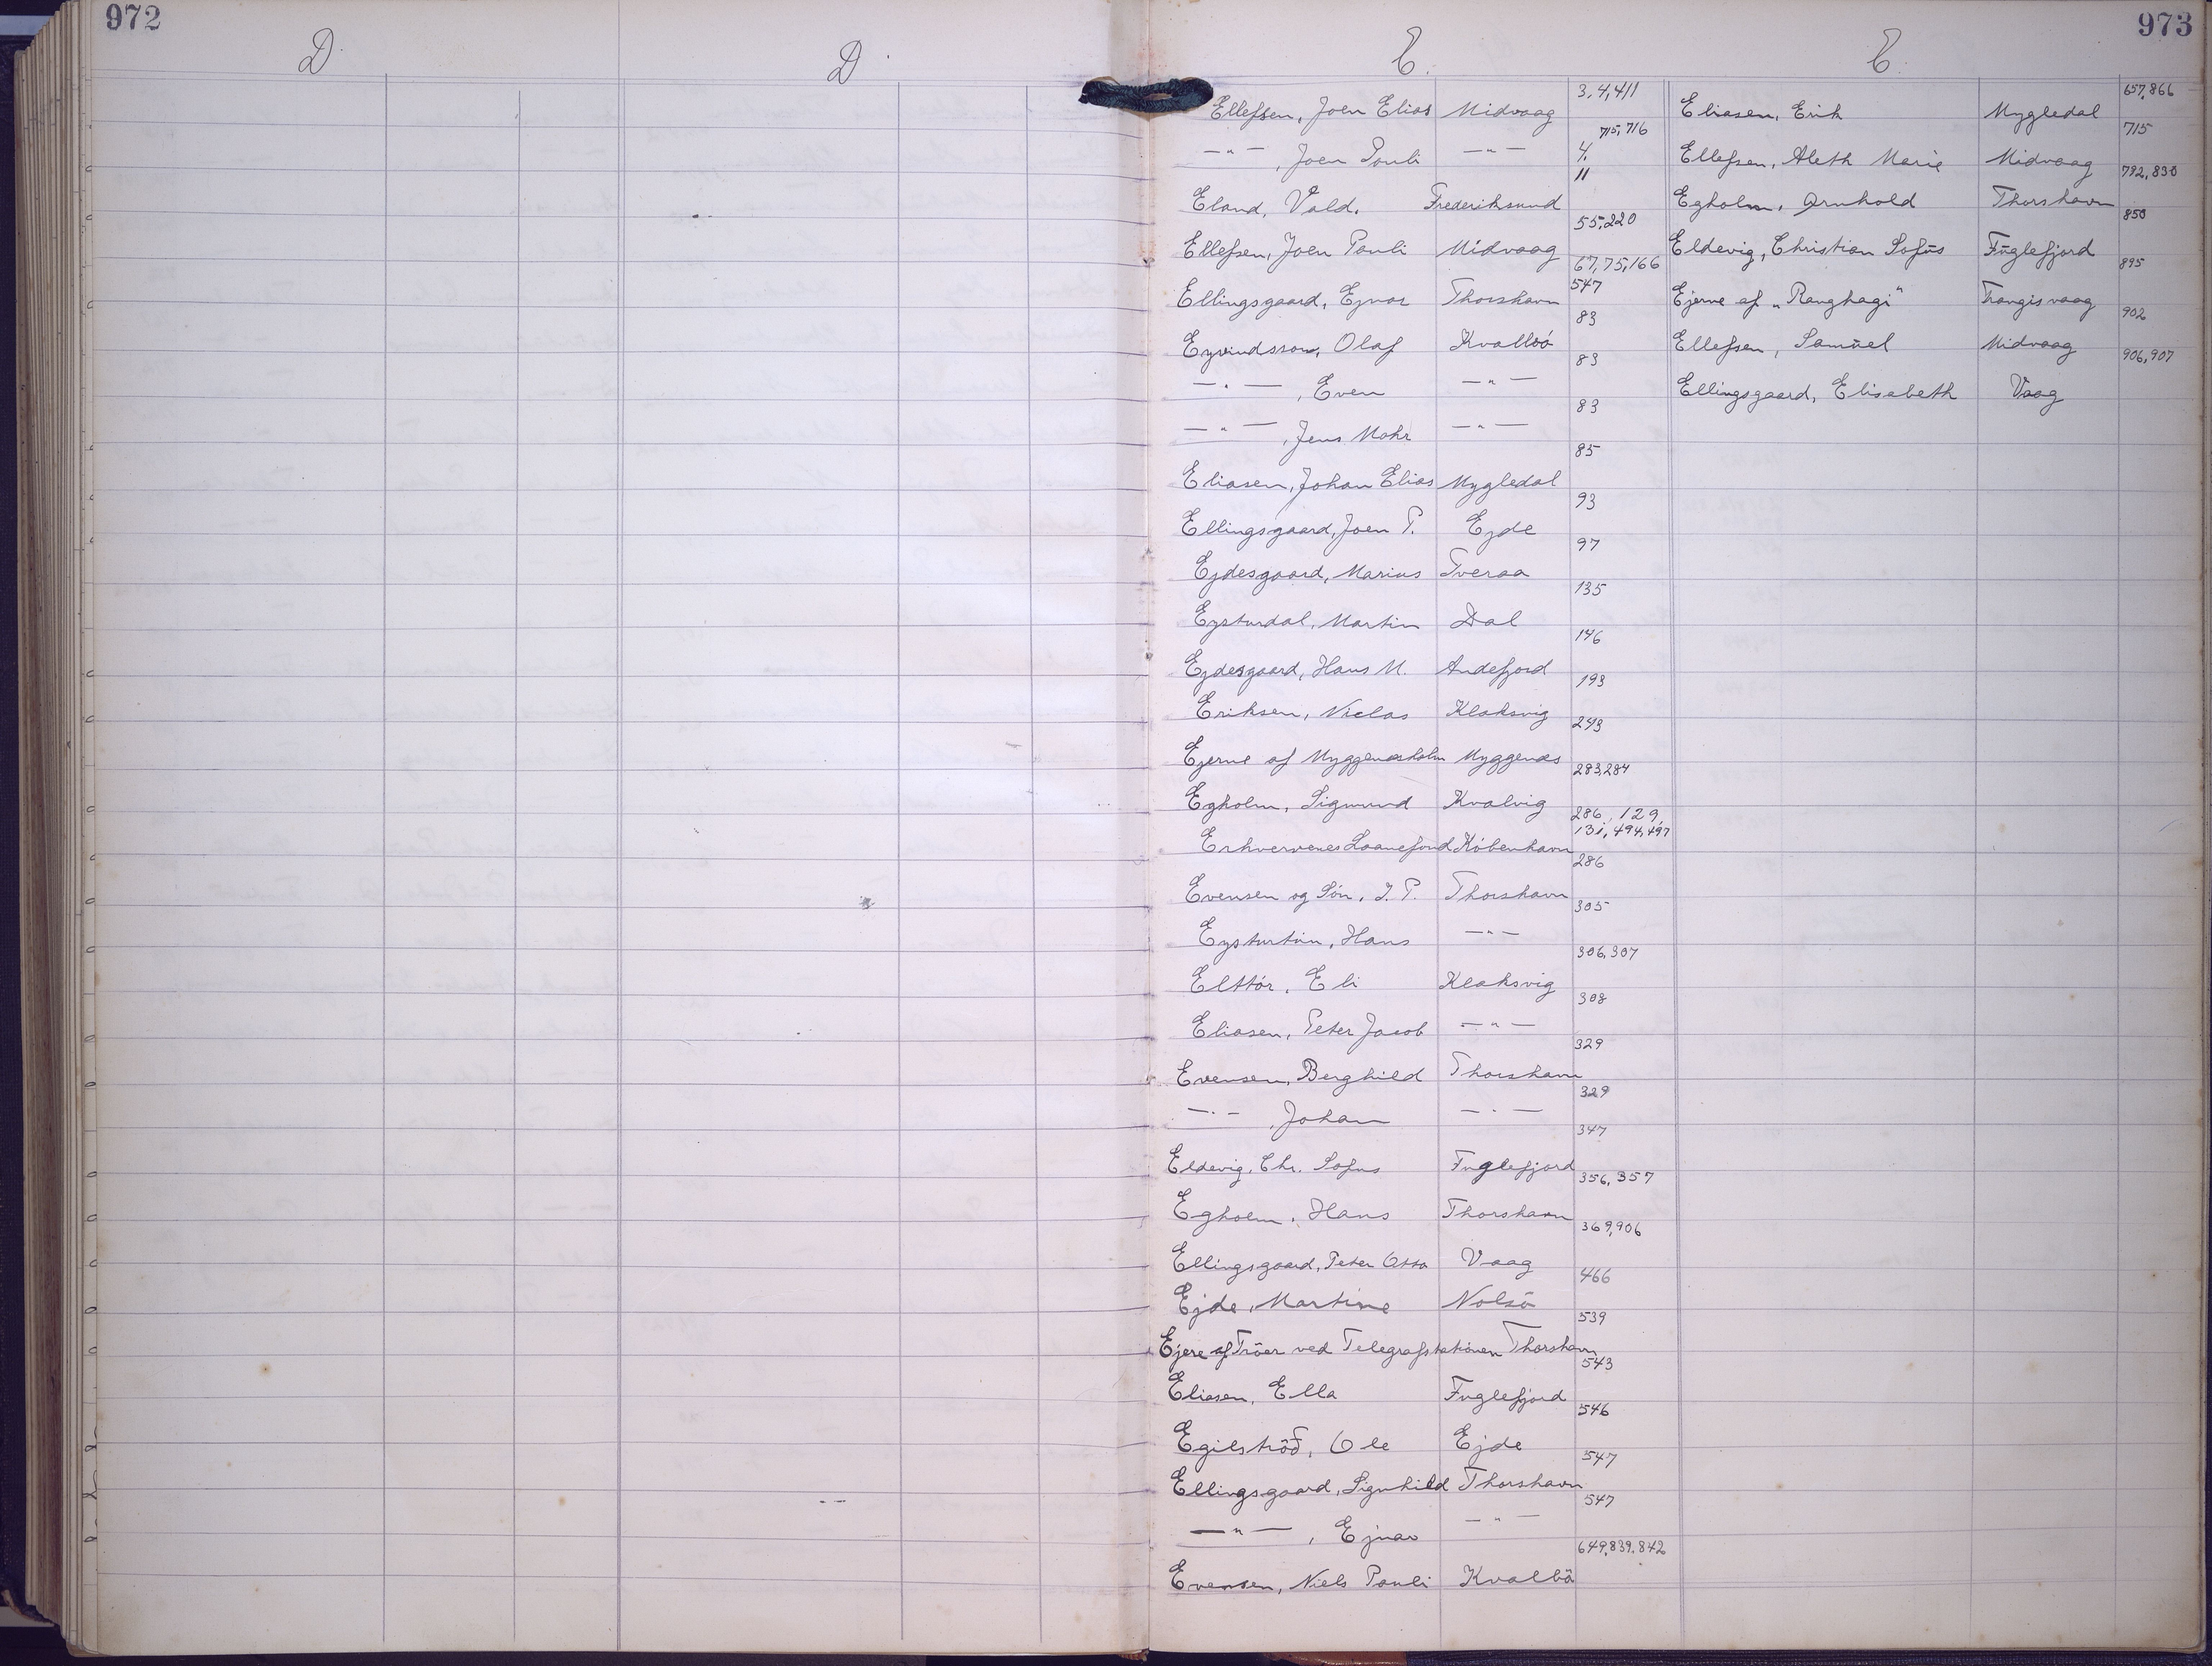 972
D
D
973
E.
E.
3,4,411
Ellefsen, Joen Elias Midvaag
715,716
—"— , Joen Pouli —"— 4.
11
Eland, Vald. Frederiksund
55,220
Ellefsen, Joen Pauli Midvaag
67,75,166
547
Ellingsgaard, Ejnar Thorshavn
83
Eyvindsson, Olaf Kvalbö
83
—"— , Even —"—
83
—"— , Jens Mohr —"—
85
Eliasen, Johan Elias Mygledal
93
Ellingsgaard, Joen P. Ejde
97
Ejdesgaard, Marius Tveraa
135
Eysturdal, Martin Dal
146
Ejdesgaard, Hans M. Andefjord
193
Eriksen, Niclas Klaksvig
243
Ejerne af Myggenæsholm Myggenæs
283,284
Egholm, Sigmund Kvalvig
286, 129,
131, 494,497
Erhvervenes Laanefond København
286
Evensen og Søn, J. P. Thorshavn
305
Eysturtún, Hans —"—
306,307
Elttór, Eli Klaksvig
308
Eliasen, Peter Jacob —"—
329
Evensen, Berghild Thorshavn
329
—"— , Johan —"—
347
Eldevig, Chr. Sofus Fuglefjord
356, 357
Egholm, Hans Thorshavn
369,906
Ellingsgaard, Peter Otto Vaag
466
Ejde, Martine Nolsö
539
Ejere af Tröer ved Telegrafstationen Thorshavn
543
Eliasen, Ella Fuglefjord
546
Egilströð, Ole Ejde
547
Ellingsgaard, Signhild Thorshavn
547
—"— , Ejnar —"—
649,839,842
Evensen, Niels Pauli Kvalbö
657,866
Eliasen, Erik Mygledal
715
Ellefsen, Aleth Marie Midvaag
792,830
Egholm, Arnhold Thorshavn
850
Eldevig, Christian Sofus Fuglefjord
895
Ejerne af „Ranghagi" Trangisvaag
902
Ellefsen, Samuel Midvaag
906,907
Ellingsgaard, Elisabeth Vaag